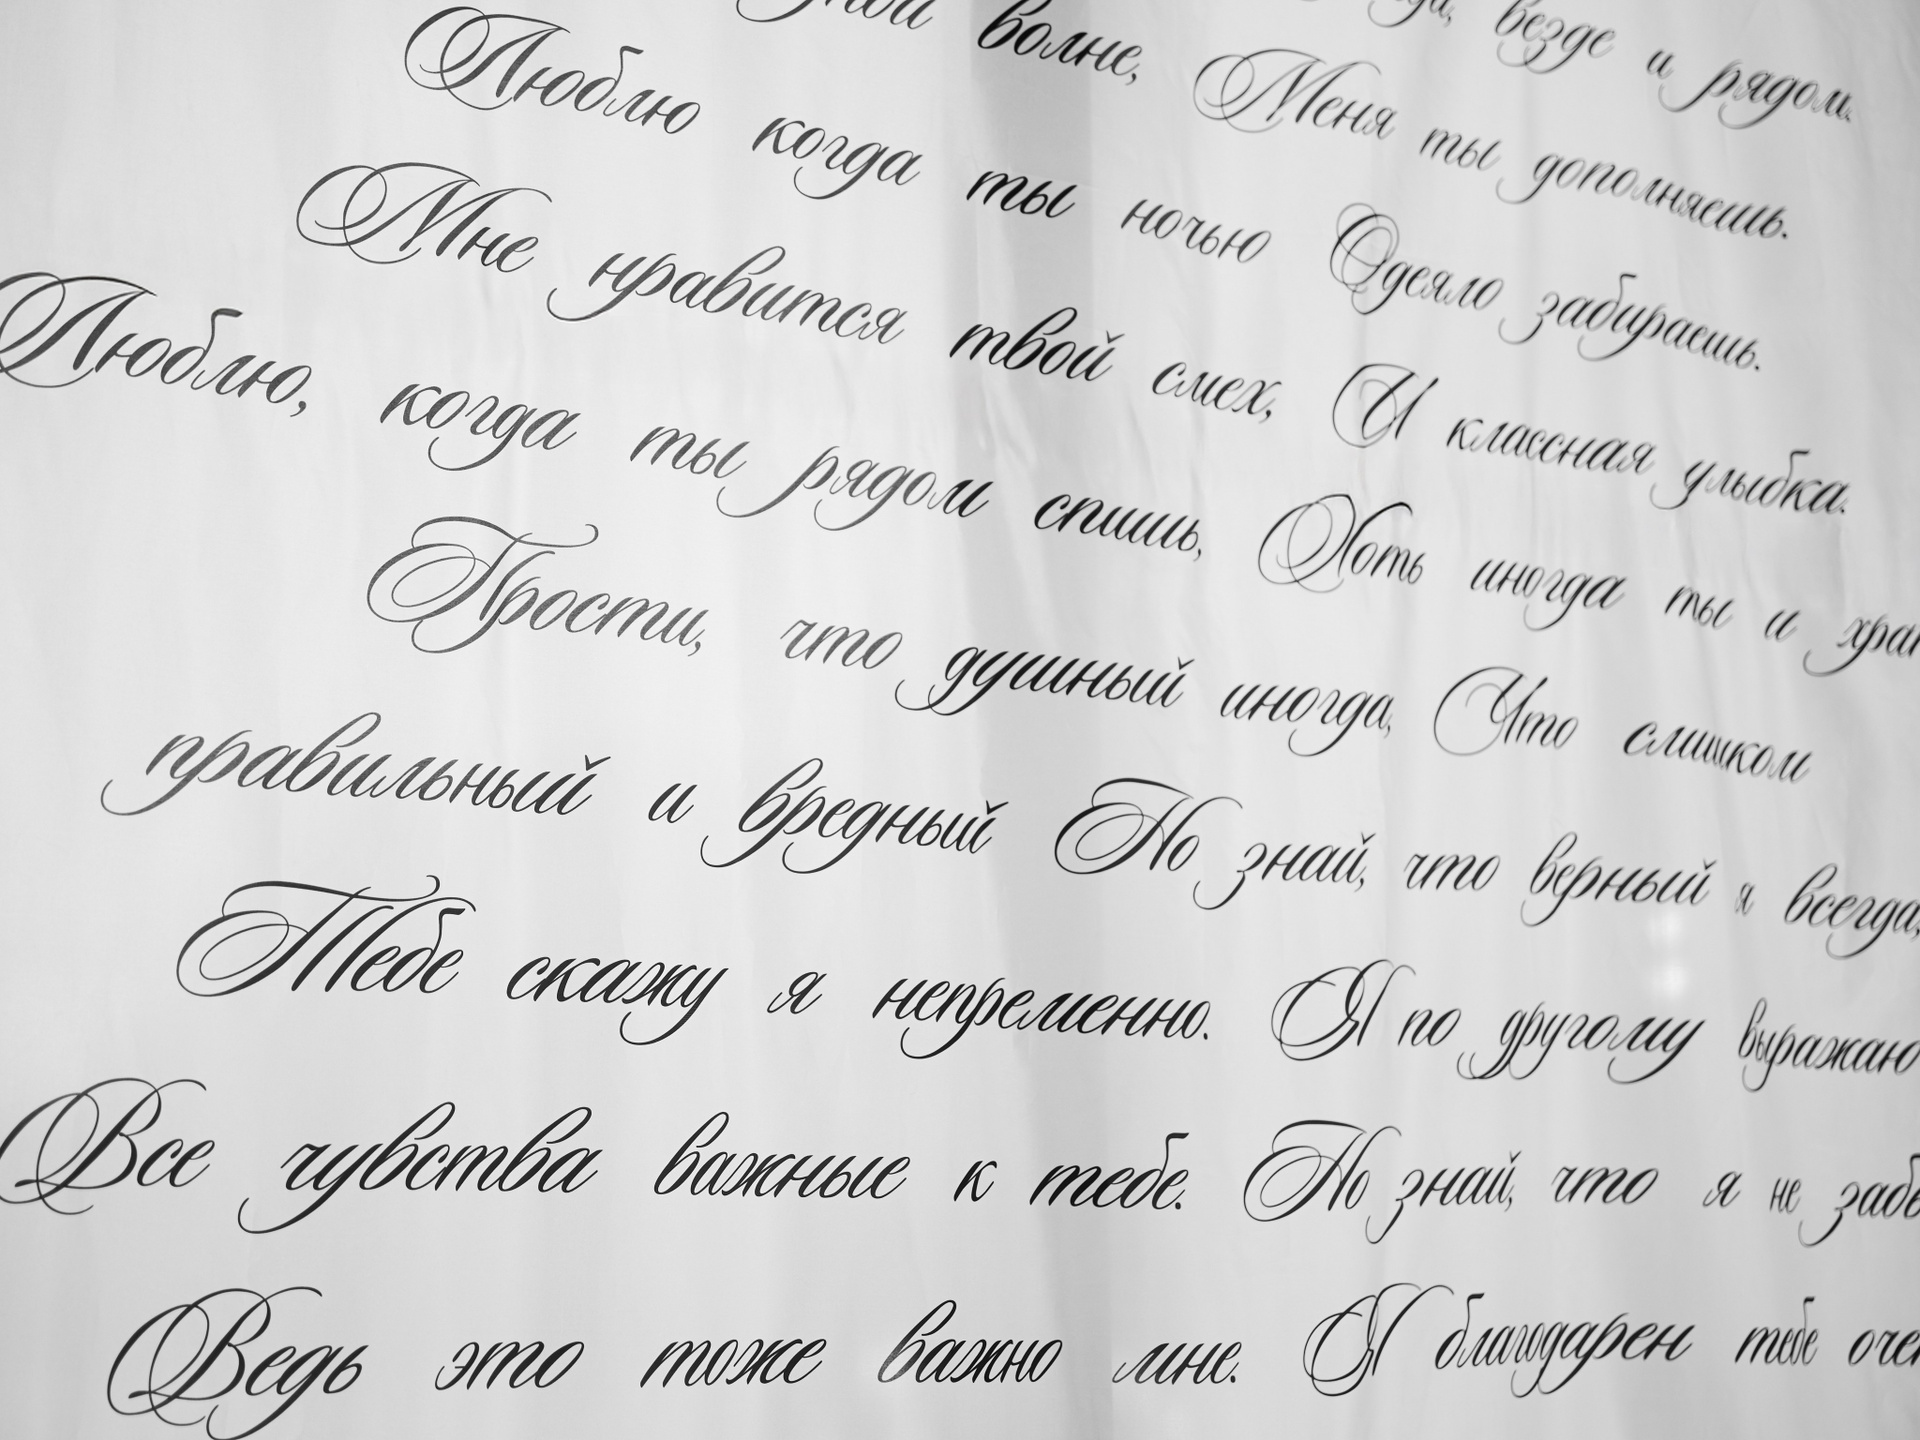 везде и рядом.
волне, Меня ты дополняешь.
Люблю когда ты ночью Одеяло забираешь.
Мне нравится твой смех, И классная улыбка.
Люблю, когда ты рядом спишь, Хоть иногда ты и
Прости, что душный иногда, Что слишком
правильный и вредный Но знай, что верный я всегда,
Тебе скажу я непременно. Я по другому выражаю
Все чувства важные к тебе. Но знай, что я не
Ведь это тоже важно мне. Я благодарен тебе